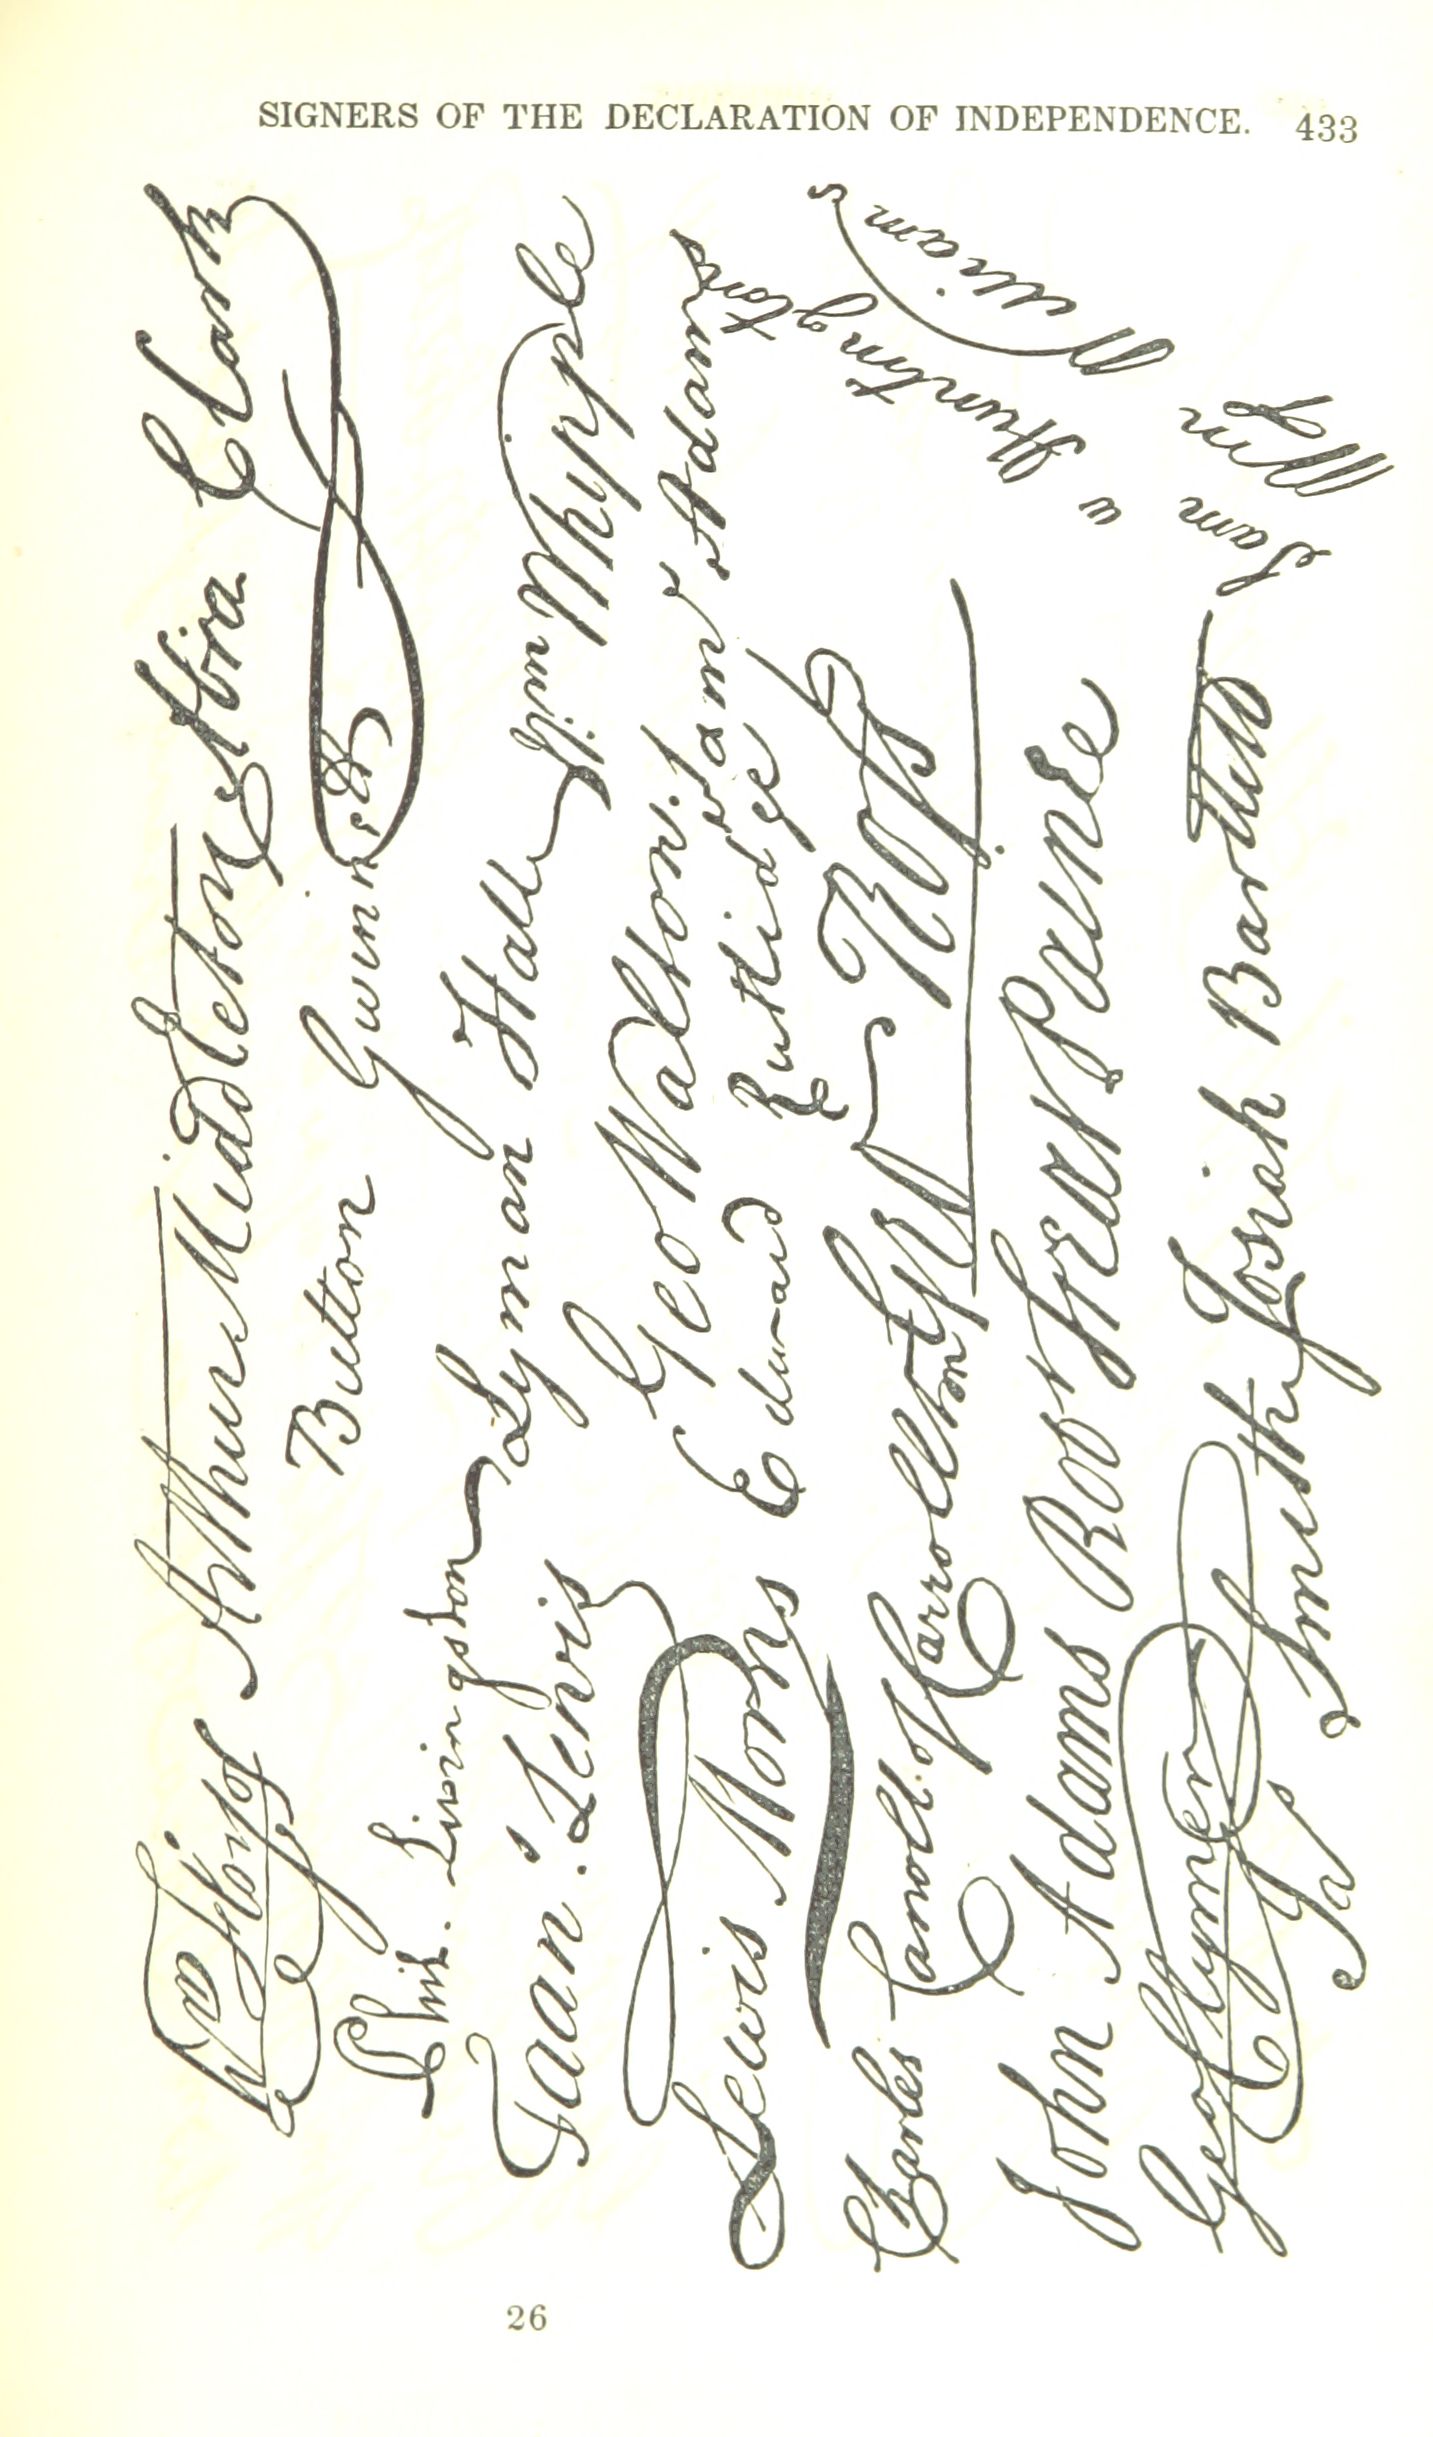 SIGNERS OF THE DECLARATION OF INDEPENDENCE. 433
Arthur Middleton
Abra Clark
Button Gwinnett
Phil. Livingston
Lyman Hall
Wm Whipple
Fran.s Lewis
Geo Walton.
Sam.l Adams
Lewis Morris
Edward Rutledge
Charles Carroll of Carrollton
Geo Ross
John Adams
Robt Treat Paine
Geo Clymer
Ja
Smith
Josiah Bartlett
Sam
Huntington
Wm
Williams
26